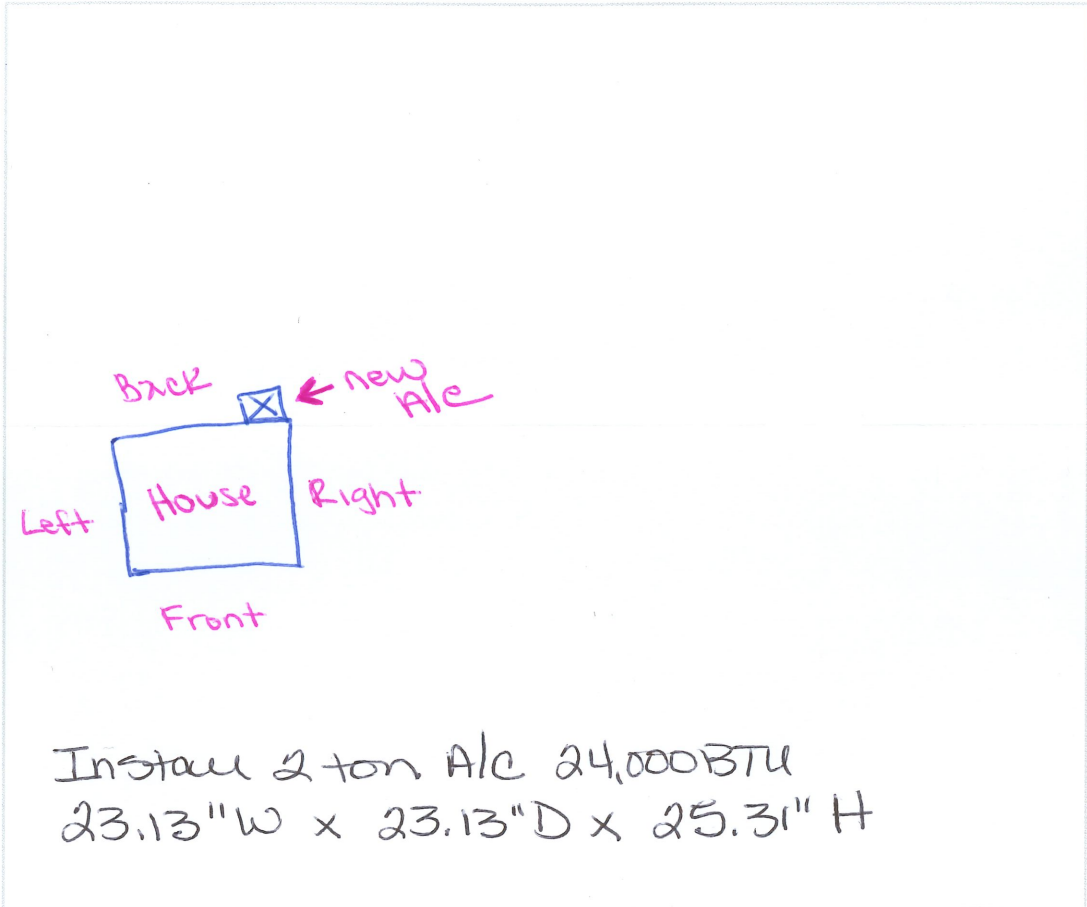 Back
new
A/c
House
Right
Left
Front
Install 2 ton A/c 24,000BTU
23.13"W x 23.13"D x 25.31" H